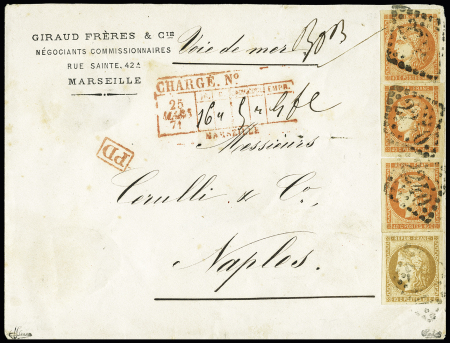 GIRAUD FRÈRES & CIE
NÉGOCIANTS COMMISSIONNAIRES
RUE SAINTE, 42A
MARSEILLE
Voie de mer
CHARGÉ. No
25
MARS
71
MARSEILLE
PD
Messieurs
Cerulli & Co,
Naples.
2240
REPUB. FRANC.